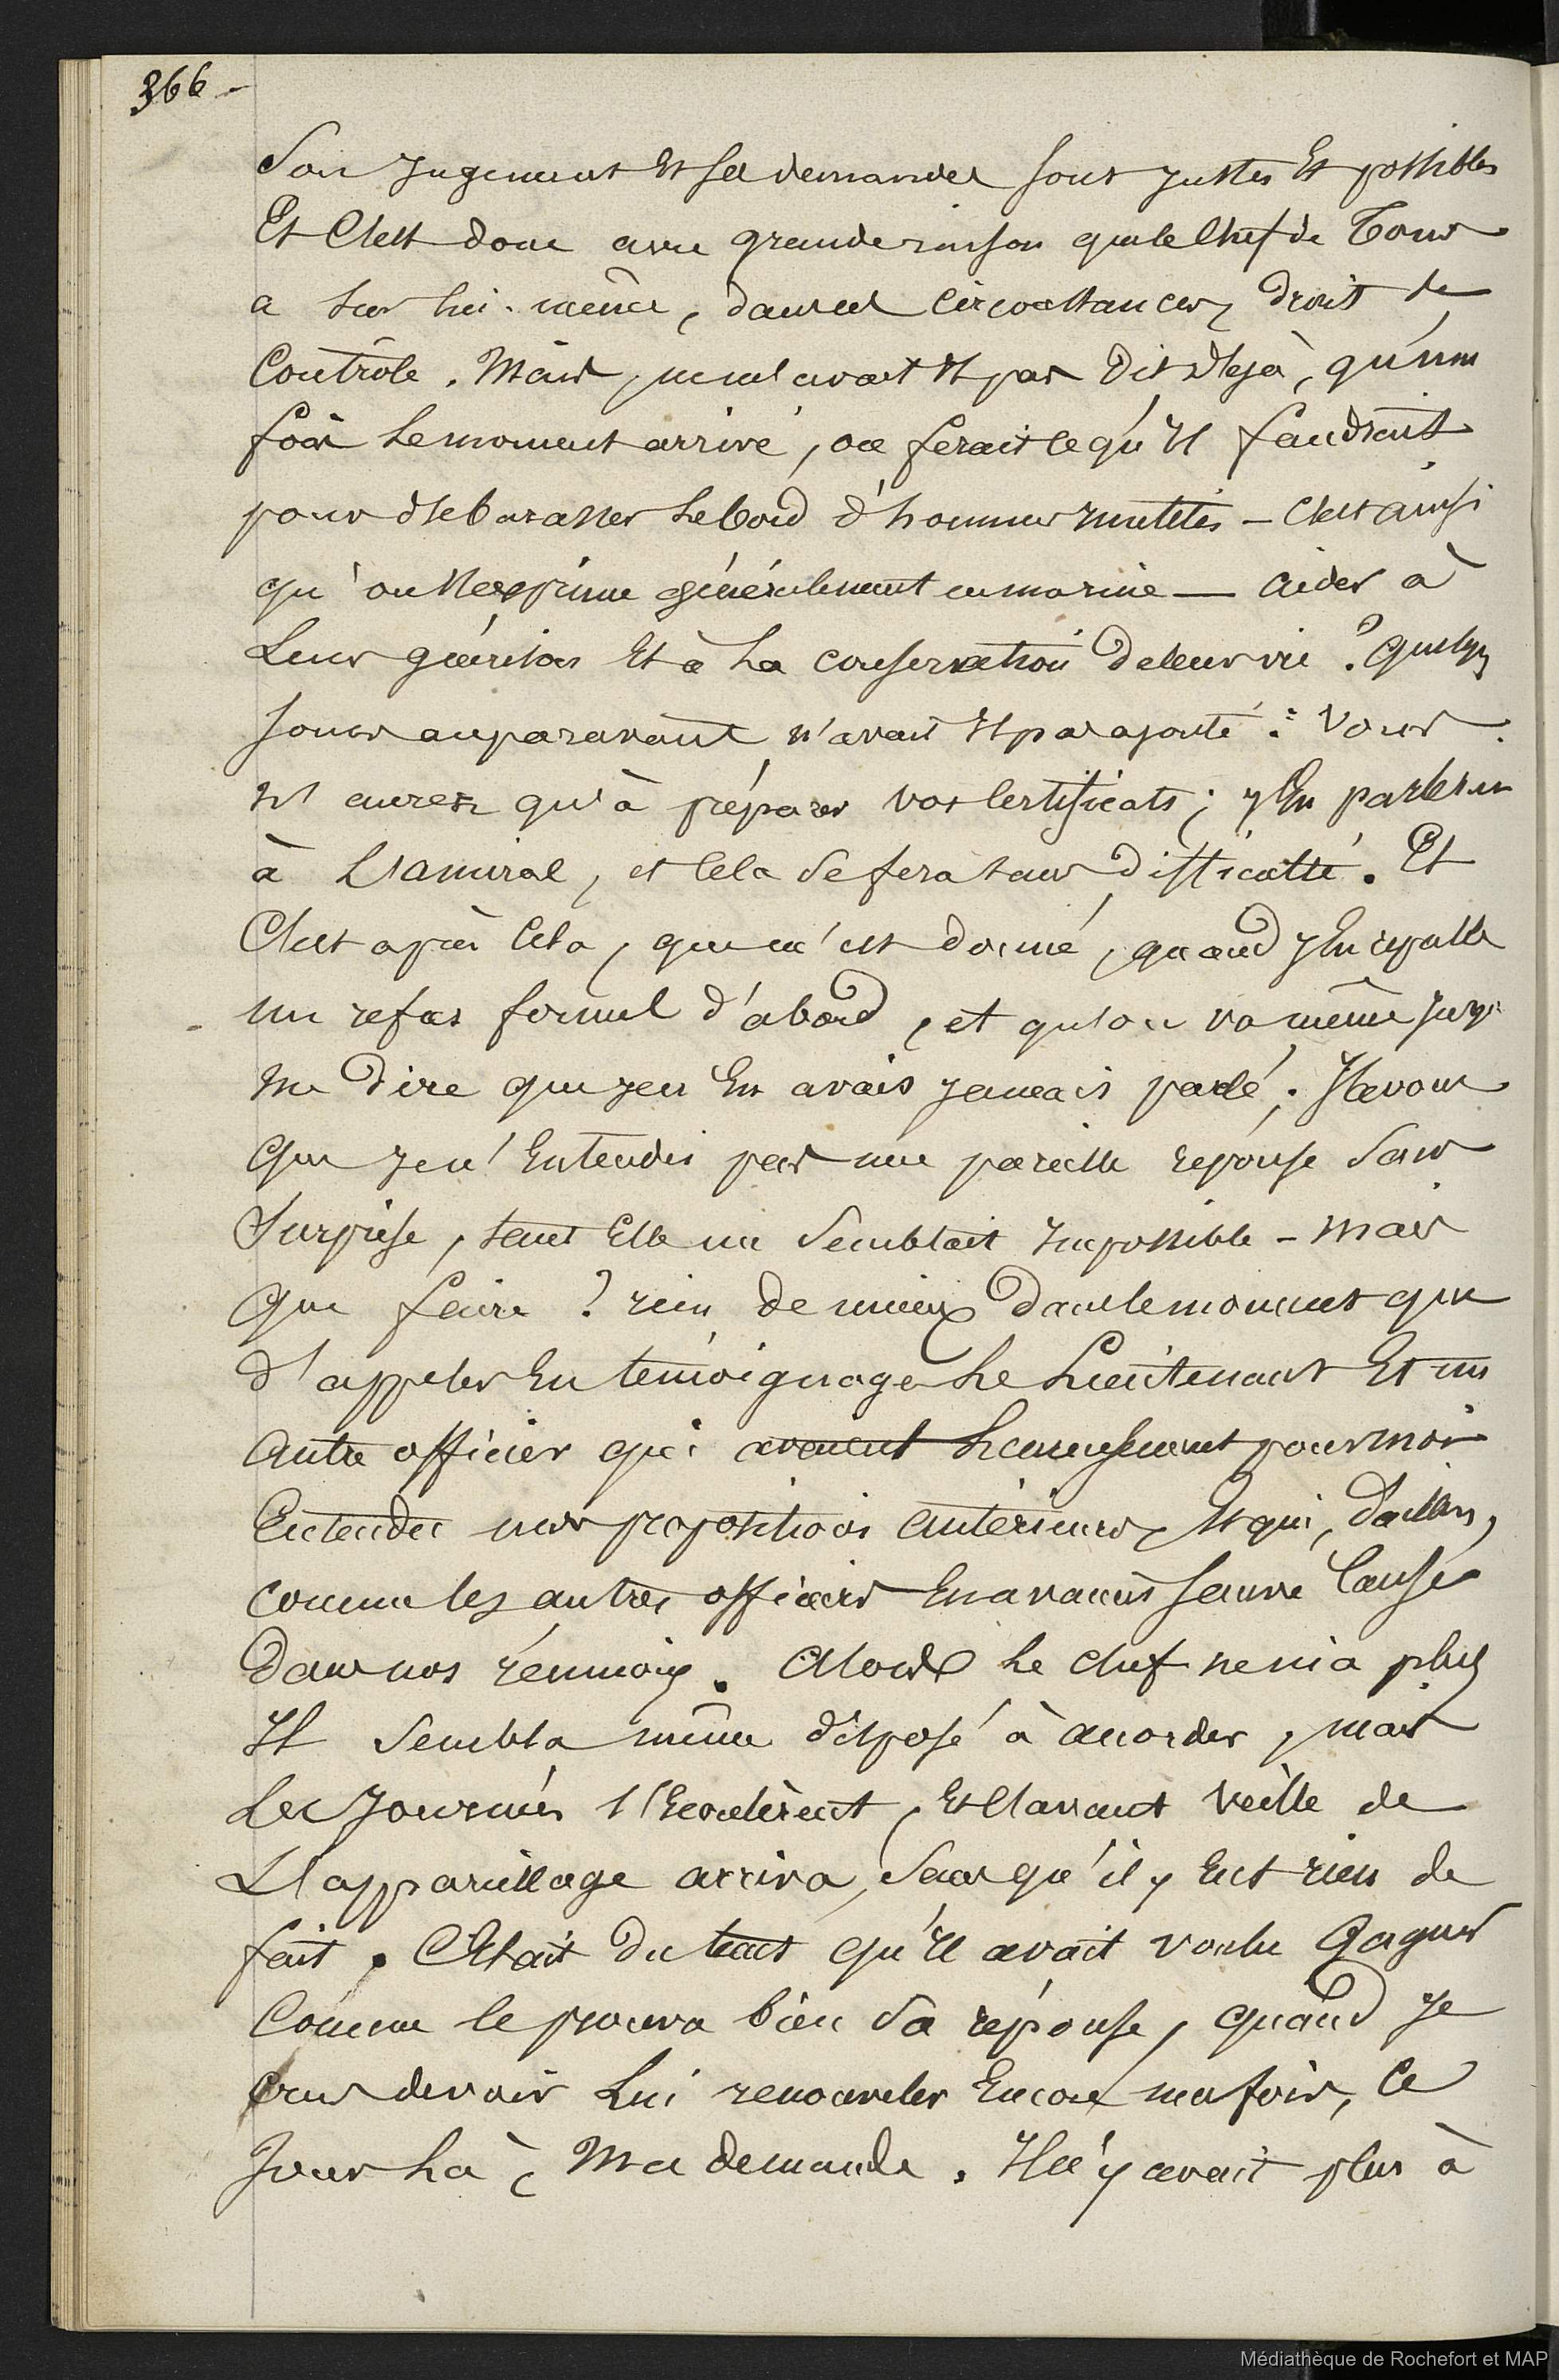 366 -
Son jugement et ses demandes sont justes et possibles
Et c'est donc avec grande raison que le Chef de Tous
a sur lui-même, dans ces circonstances, droit de
Contrôle. Mais, ne m'avait il pas dit déjà, qu'une
fois le moment arrivé, on ferait ce qu'il faudrait
pour débarasser le bord d'hommes inutiles - C'est ainsi
qu'on s'exprime généralement en marine - aider à
Leur guérison et à la conservation de leur vie ? Quelques
jours auparavant n'avait il pas ajouté : Vous
n'aurez qu'à préparer vos certificats ; j'en parlerai
à L'amiral, et cela se fera sans difficulté. Et
C'est après cela, que m'est donné, quand j'en reparle
un refus formel d'abord, et qu'on va même jusqu'à
me dire que je n'en avais jamais parlé. J'avoue
que je n'entendis pas une pareille réponse sans
Surprise, tant elle me semblait impossible - mais
que faire ? rien de mieux dans le moment que
d'appeler en témoignage le Lieutenant et un
autre officier qui avaient heureusement pour moi
Entendu mes propositions antérieures, et qui, d'ailleurs,
comme les autres officiers en avaient souvent causé
dans nos réunions. Alors le chef ne nia plus
Il sembla même disposé à accorder, mais
Les journées s'écoulèrent, et l'avant veille de
L'appareillage arriva, sans qu'il y eut rien de
fait. C'était du temps qu'il avait voulu gagner
Comme le prouva bien sa réponse, quand je
crus devoir lui renouveler encore une fois, ce
Jour là, ma demande. Il n'y avait plus à
Médiathèque de Rochefort et MAP